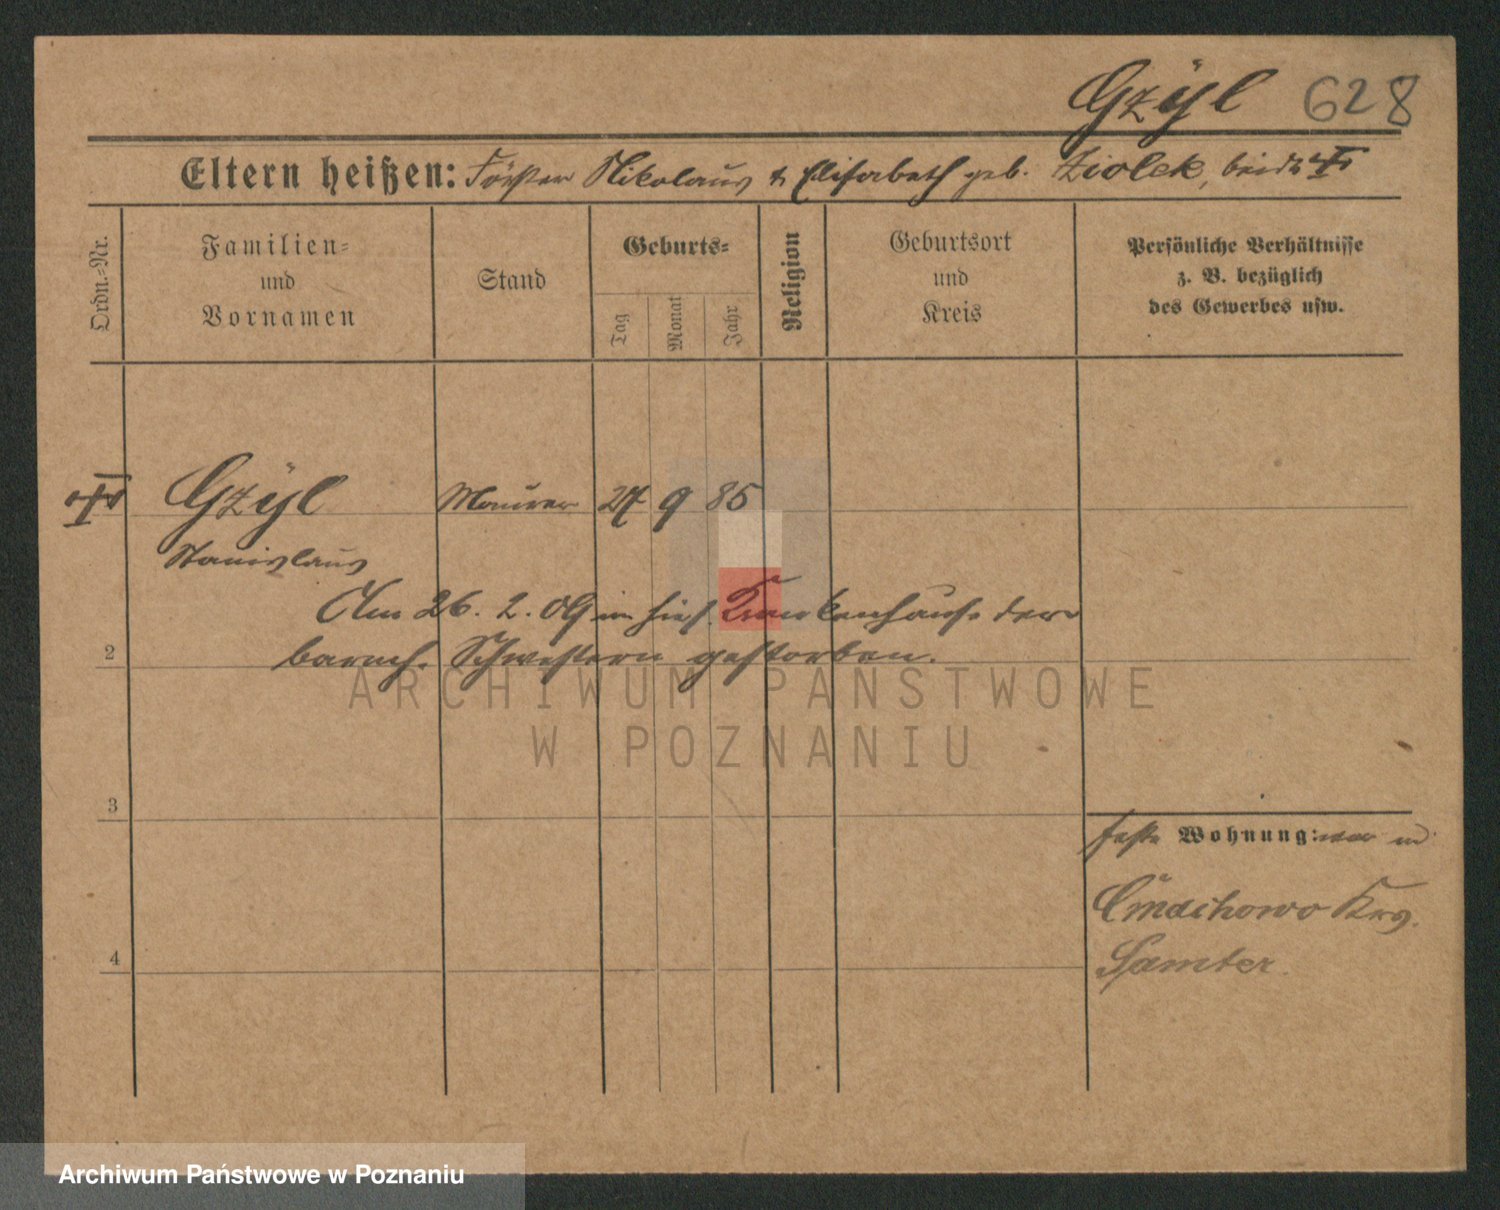 Gzÿl 628
Eltern heißen: Förster Nikolaus & Elisabeth geb. Ziolek, beide
Ordn.-Nr.
Familien- und Vornamen
Stand
Geburts-
Tag
Monat
Jahr
Religion
Geburtsort und Kreis
Persönliche Verhältnisse
z. B. bezüglich
des Gewerbes usw.
Gzÿl Maurer 27 9 85
Stanislaus
Am 26. 2. 09 im hies. Krankenhause der
barmh. Schwestern gestorben.
2
ARCHIWUM PAŃSTWOWE
W POZNANIU
3
feste Wohnung: war in
Cmachowo Krs.
Samter.
4
Archiwum Państwowe w Poznaniu